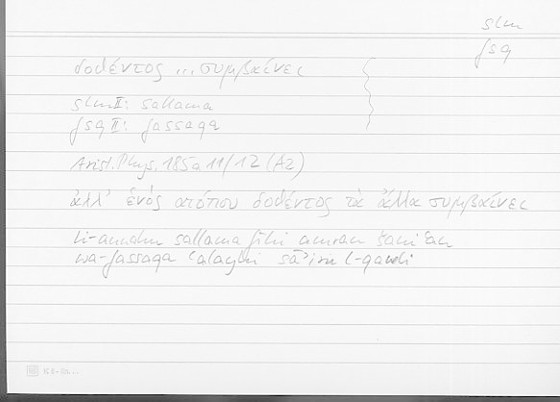 slm
fsq
δοθέντος ... συμβαίνει
slm II: sallama
fsq II: fassaqa
Arist. Phys. 185a 11/12 (A2)
ἀλλ' ἑνὸς ἀτόπου δοθέντος τὰ ἄλλα συμβαίνει
li-annahu sallama fīhi amran šanīʿan
wa-fassaqa ʿalayhi sāʾira l-qawli